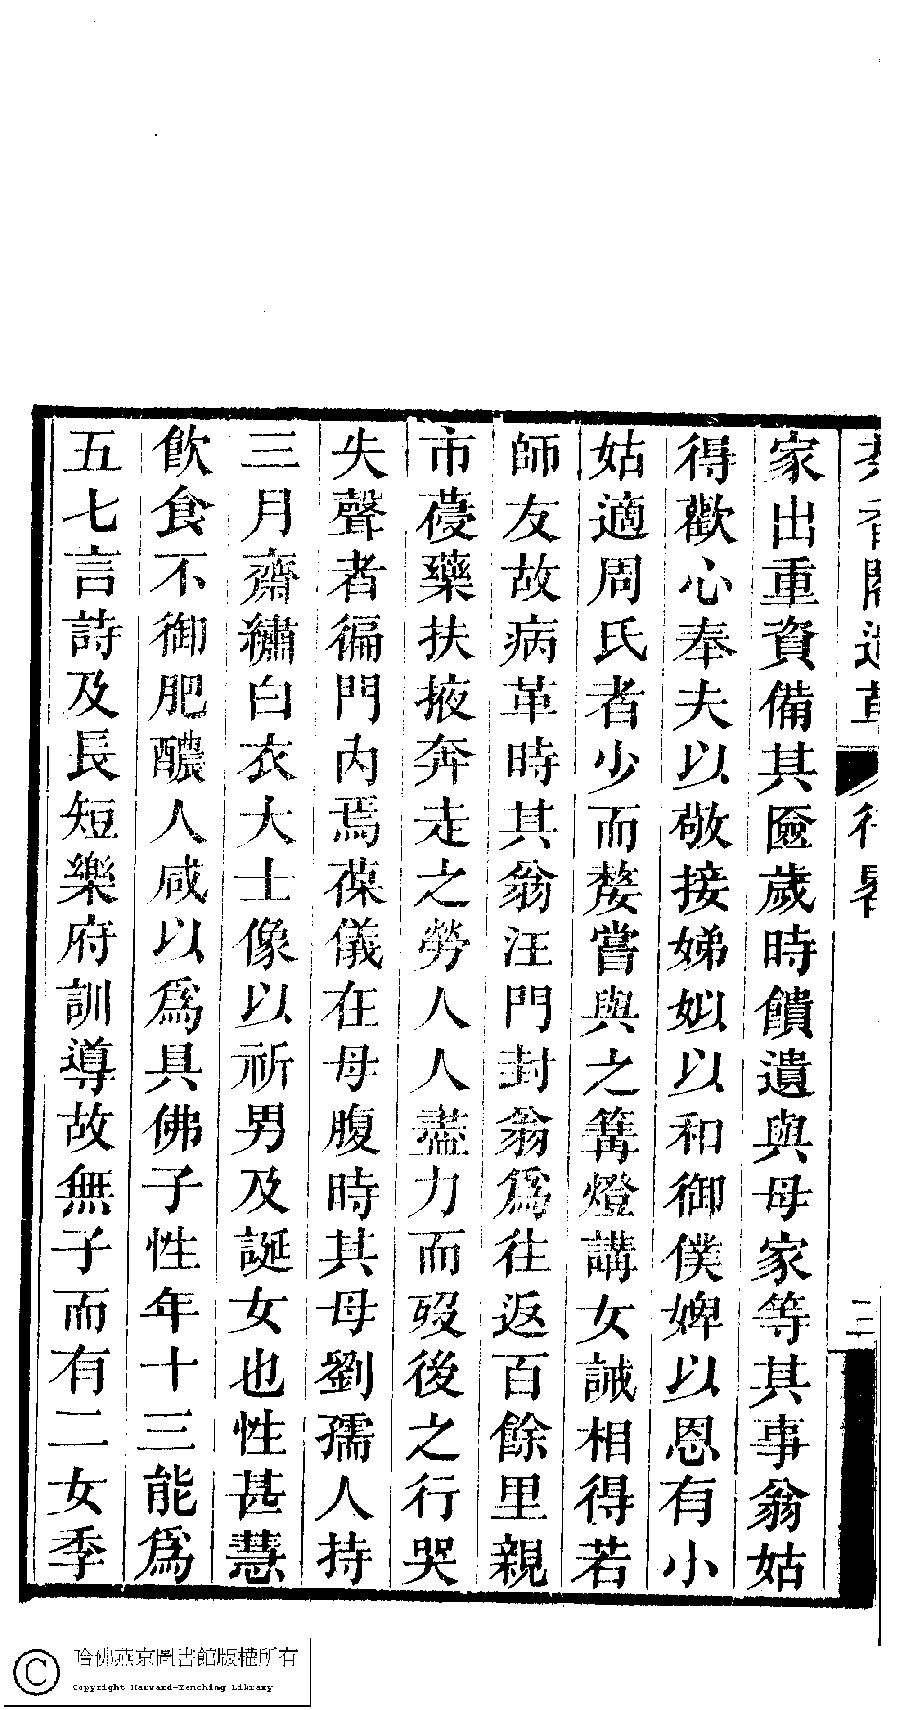 家出重資備其匳歲時饋遺與母家等其事翁姑
得歡心奉夫以敬接娣姒以和御僕婢以恩有小
姑適周氏者少而嫠嘗與之篝燈講女誡相得若
師友故病革時其翁汪門封翁爲往返百餘里親
市葠藥扶掖奔走之勞人人盡力而歿後之行哭
失聲者徧門内焉葆儀在母腹時其母劉孺人持
三月齋繡白衣大士像以祈男及誕女也性甚慧
飲食不御肥醲人咸以爲具佛子性年十三能爲
五七言詩及長短樂府訓導故無子而有二女季
香閣遺草 行畧
二
哈佛燕京圖書館版權所有
Copyright Harvard-Yenching Library